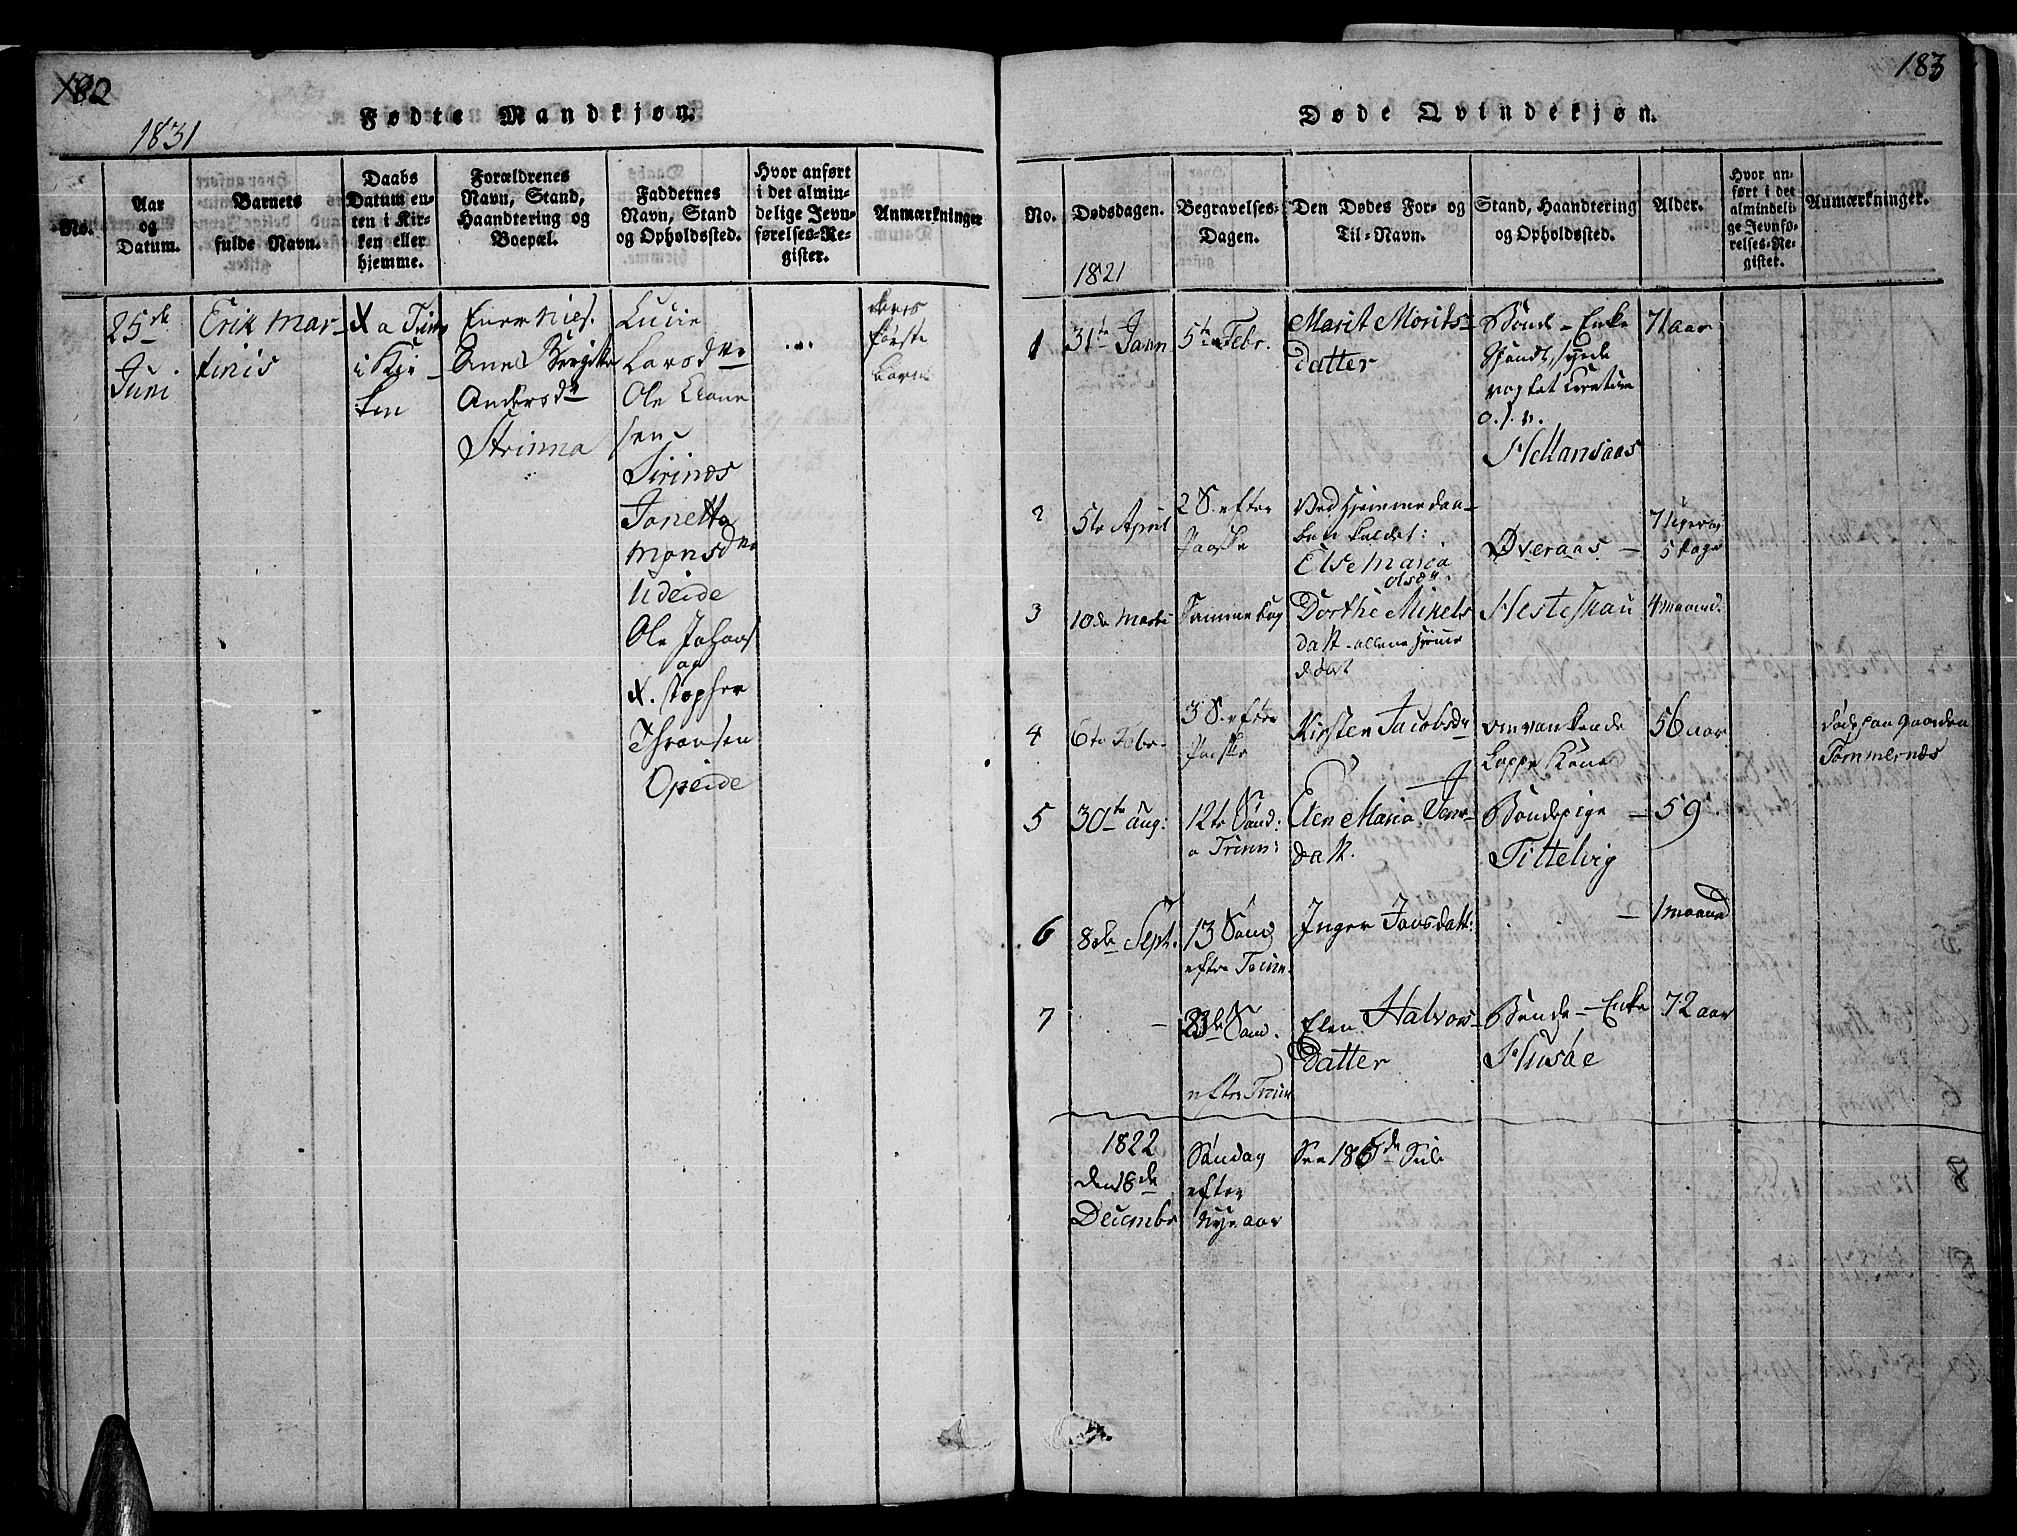 182
Fødte Mandkjøn.
1831
No.
Aar
og
Datum.
Barnets
fulde Navn.
Daabs
Datum en-
ten i Kir-
ken eller
hjemme.
Forældrenes
Navn, Stand,
Haandtering og
Boepæl.
Faddernes
Navn, Stand
og Opholdssted.
Hvor anført
i det almin-
delige Jevn-
førelses-Re-
gister.
Anmærkninger
25de
Juni
Erik Mar-
tinis
X a Trin
i Kir-
ken
Anne Birgitte
Andersdtr
Strinna
Lucie
Larsdtr
Ole
sen
Sirinæs
Jonetta
Monsdtr
Udeide
Ole Johans
og
X. stopher
Thronsen
Opeide
deres
første
barn
183
Døde Qvindekjøn.
No.
Dødsdagen.
Begravelses-
Dagen.
Den Dødes For- og
Til-Navn.
Stand, Haandtering
og Opholdssted.
Alder.
Hvor an-
ført i det
almindeli-
ge Jevnfø-
relses-Re-
gister.
Anmærkninger.
1821
1 31te Jann 5te Febr. Marit Morits-
datter
Bonde-Enke
o.s.v.
Hellansaas
71 aar
2 5te April 2 S. efter
Paaske
Ved hjemmedaa-
ben kaldet:
Else Maria
Olsdtr.
Øveraas
7 Uger og
5 dage
3 10de Marti Samme dag Dorthe Mikels
datt. allene hjemme
døbt
Hesteskau 4 maaned.
4 6te Febr. 3 S. efter
Paaske
Kirsten Jacobsdtr omvankende
Lappe Kone
56 aar
døde paa Gaarden
Tømmernæs
5 30te Aug: 12te Sønd:
a Trinn:
Elen Maria Jens-
datt.
Bondepige
Tittelvig
59
6 8de Sept. 13 Sønd
efter Trinn.
Inger Jonsdatt: 1 maaned
7 Sønd.
efter Trin
Elen Halvors-
datter
Bonde-Enke
Husøe
72 aar
1822
den 18de
Decembr
Søndag
efter
Nyeaar
See 186de Side